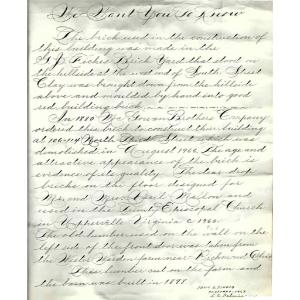 We Want You To Know
The brick used in the construction of
this building was made in the
Brick Yard that stood on
the hillside at the west end of South Street
Clay was brought down from the hillside
above and moulded by hand into good
red building brick.
In 1880 Mc Gowan Brothers Company
ordered this brick to construct building
at 106-114 North Street which was
demolished in 1966. The age and
attractive appearance of the brick is
evidence of its quality. The tear drop
bricks on the floor designed for
Mr. and Mrs. Paul Mellon and
used in the Trinity Episcopal Church
in Upperville Virginia c 1960.
The lumber used on the wall on the
left side of the front door was taken from
the farm near Ohio
This lumber out on the farm and
the barn was built in 1898